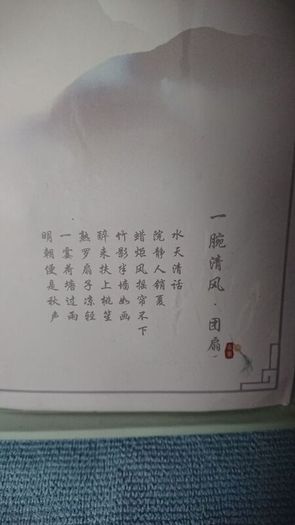 一腕清风·团扇
水天清话
院静人销夏
蜡炬风摇帘不下
竹影半墙如画
醉来扶上桃笙
熟罗扇子凉轻
一霎荷塘过雨
明朝便是秋声